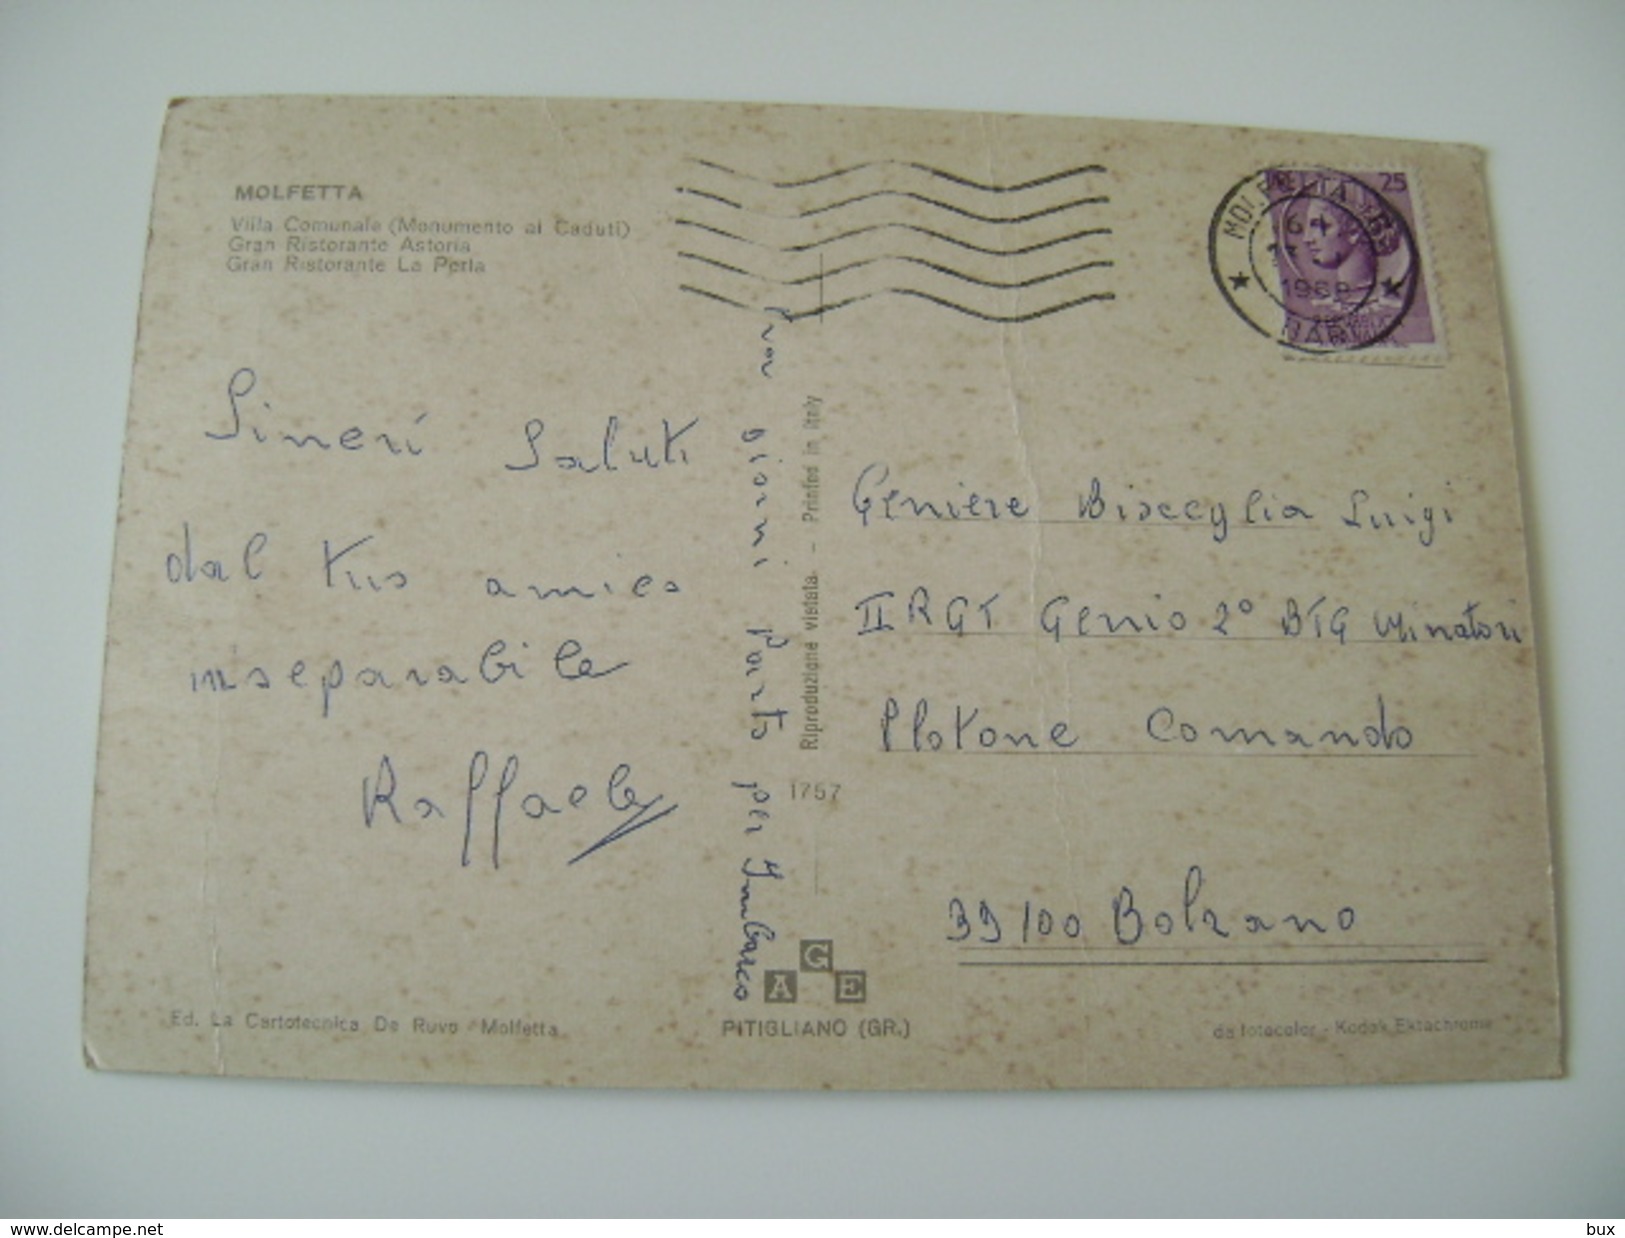 MOLFETTA
Villa Comunale (Monumento ai Caduti)
Gran Ristorante Astoria
Gran Ristorante La Perla
25
MOLFETTA
1968
BARI
Sineri Saluti
dal tuo amico
inseparabile
Raffaele
giorni Parto per Imbarco
Riproduzione vietata - Printed in Italy
1757
Geniere Bisceglia Luigi
II RGT Genio 2° BTG Minatori
Plotone Comando
39100 Bolzano
AGE
PITIGLIANO (GR.)
Ed. La Cartotecnica De Ruvo - Molfetta
da fotocolor - Kodak Ektachrome
www.delcampe.net
bux